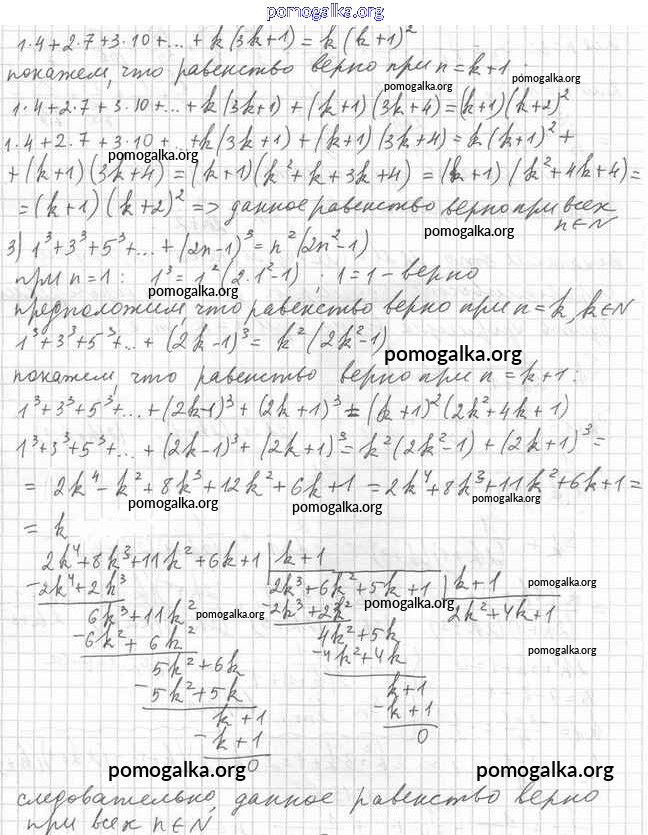 pomogalka.org
1·4+2·7+3·10+...+k(3k+1)=k(k+1)²
покажем, что равенство верно при n=k+1:
pomogalka.org
pomogalka.org
1·4+2·7+3·10+...+k(3k+1)+(k+1)(3k+4)=(k+1)(k+2)²
1·4+2·7+3·10+...+k(3k+1)+(k+1)(3k+4)=k(k+1)²+
pomogalka.org
+(k+1)(3k+4)=(k+1)(k²+k+3k+4)=(k+1)(k²+4k+4)=
=(k+1)(k+2)² => данное равенство верно при всех
n∈N
pomogalka.org
3) 1³+3³+5³+...+(2n-1)³=n²(2n²-1)
при n=1: 1³=1²(2·1²-1); 1=1 - верно
pomogalka.org
предположим, что равенство верно при n=k, k∈N
1³+3³+5³+...+(2k-1)³=k²(2k²-1)
pomogalka.org
покажем, что равенство верно при n=k+1:
1³+3³+5³+...+(2k-1)³+(2k+1)³=(k+1)²(2k²+4k+1)
1³+3³+5³+...+(2k-1)³+(2k+1)³=k²(2k²-1)+(2k+1)³=
=2k⁴-k²+8k³+12k²+6k+1=2k⁴+8k³+11k²+6k+1=
pomogalka.org
pomogalka.org
pomogalka.org
=k
2k⁴+8k³+11k²+6k+1 | k+1
-2k⁴+2k³ 2k³+6k²+5k+1 | k+1 pomogalka.org
6k³+11k² pomogalka.org -2k³+2k² pomogalka.org 2k²+4k+1
-6k²+6k² 4k²+5k
5k²+6k -4k²+4k pomogalka.org
-5k²+5k k+1
k+1 -k+1
-k+1 0
0
pomogalka.org pomogalka.org
следовательно, данное равенство верно
при всех n∈N